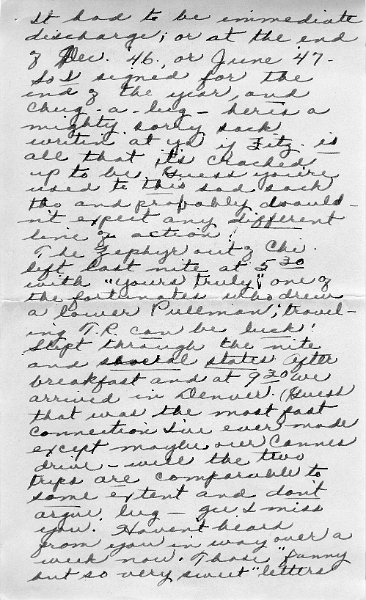 It had to be immediate
discharge; or at the end
of Dec. '46, or June '47-
So I signed for the
end of the year, and
Chug-a-lug- here's a
mighty sorry sack
writin at ya if Fitz. is
all that it's cracked
up to be, Guess you're
used to this sad sack
tho and probably would-
n't expect any different
line of action!
The Zephyr out of Chi.
left last nite at 5 30
with "yours truly", one of
the fortunates who drew
a lower Pullman; travel-
ing T.R. can be luck!
Slept through the nite
and states after
breakfast and at 9 30 we
arrived in Denver. (Guess
that was the most fast
connection I've ever made
except maybe over Cannes
drive - well the two
trips are comparable to
some extent and don't
argue, lug - gee I miss
you. Havent heard
from you in way over a
week now. Those "funny
but so very sweet" letters